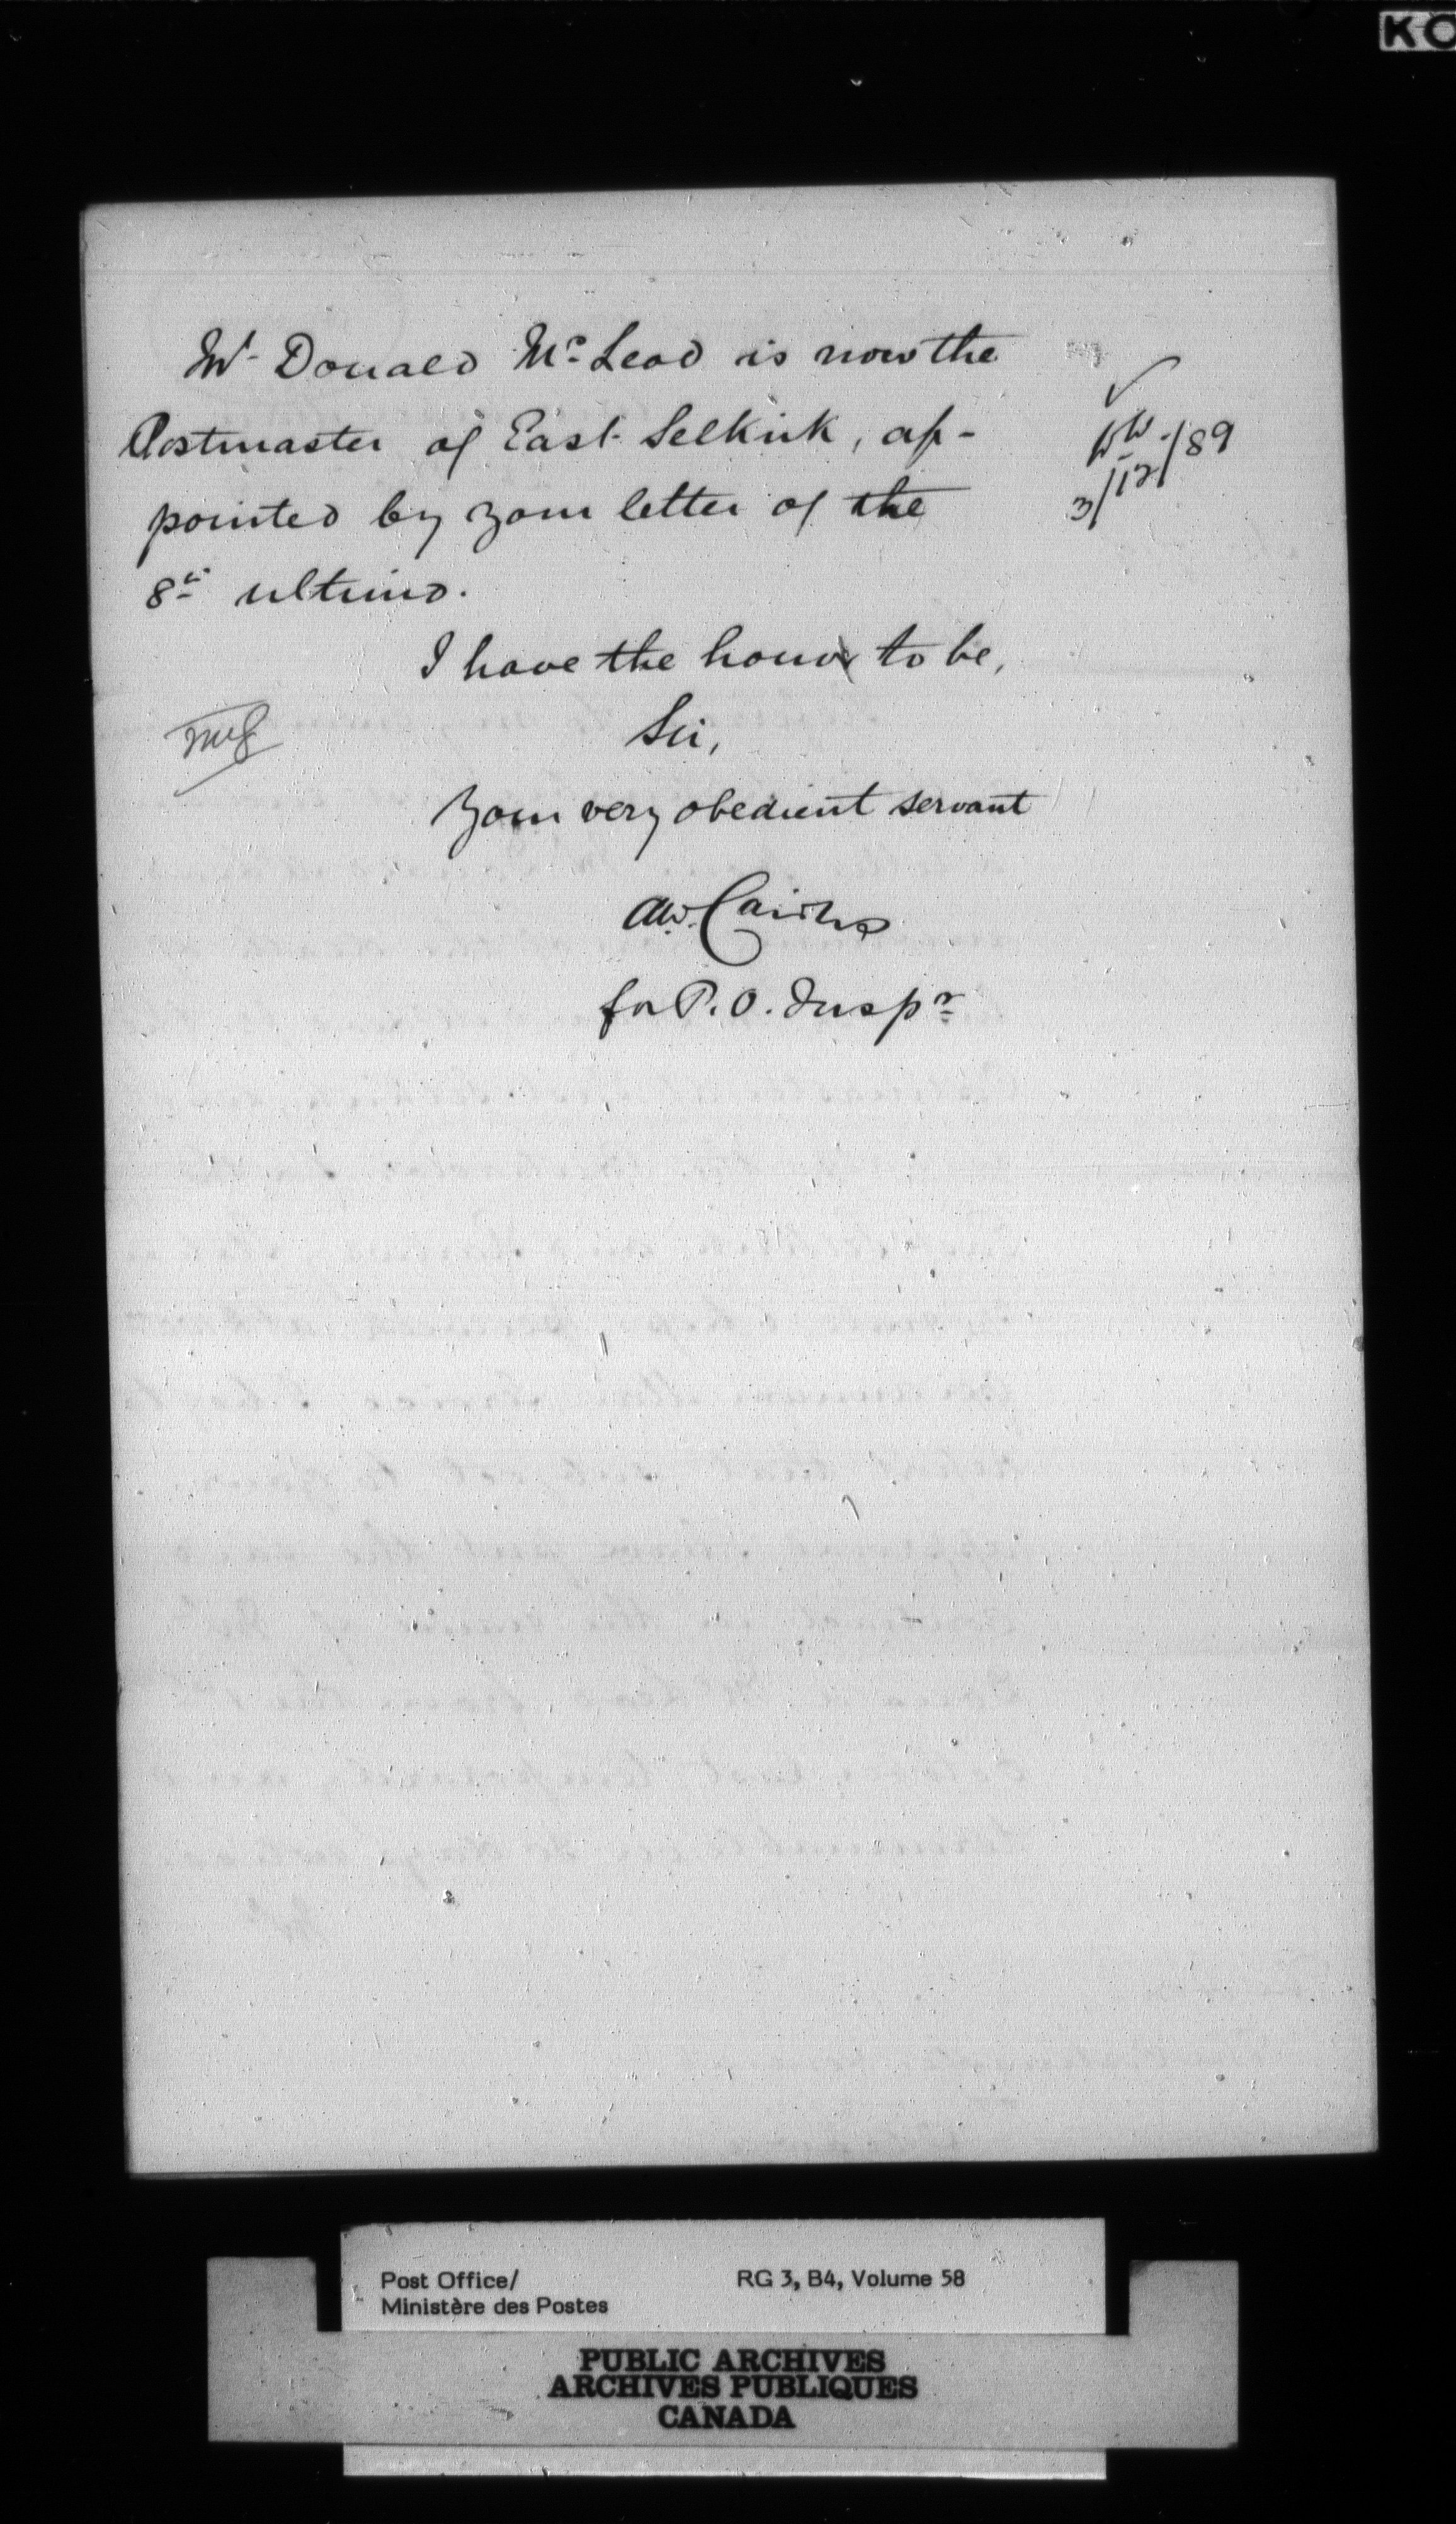 KO
Mr. Donald McLeod is now the
Postmaster of East Selkirk, ap-
pointed by your letter of the
8th ultimo.
3/12/89
I have the honor to be,
Sir,
Your very obedient servant
AW. Cairns
for P. O. Inspr
Post Office/ RG 3, B4, Volume 58
Ministère des Postes
PUBLIC ARCHIVES
ARCHIVES PUBLIQUES
CANADA